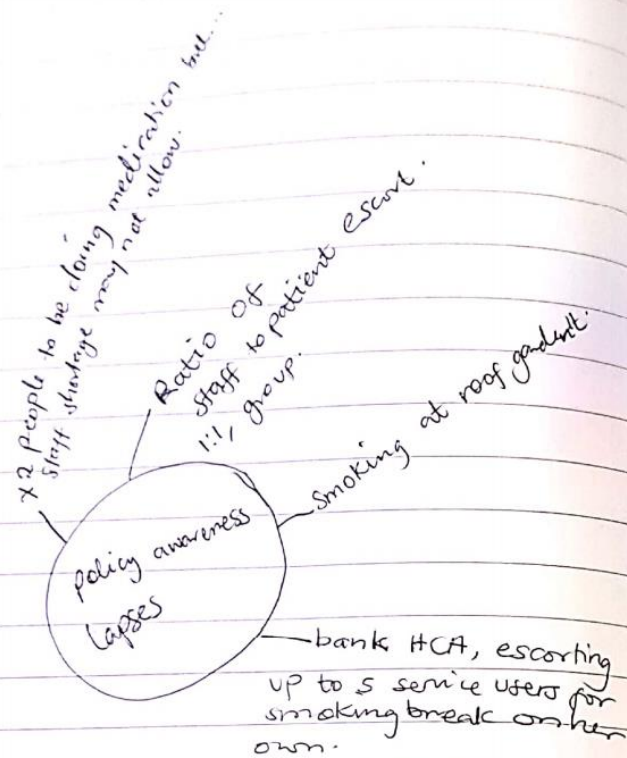 x2 people to be doing medication but...
staff shortage may not allow.
Ratio of
staff to patient escort.
1:1, group.
smoking at roof
policy awareness
lapses
bank HCA, escorting
up to 5 service users for
smoking break on her
own.